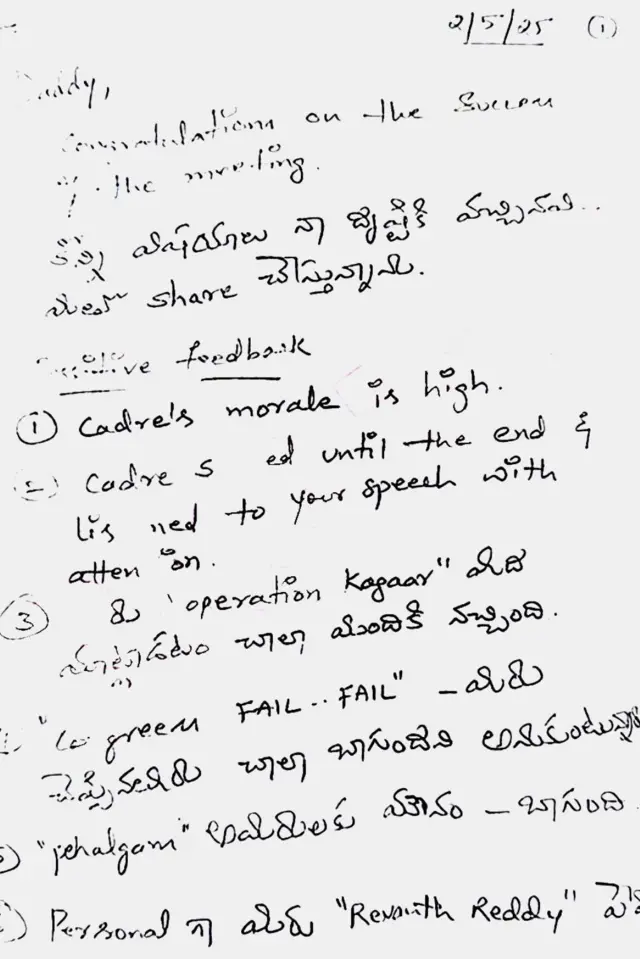 2/5/25 (1)
Daddy,
Congratulations on the success
of the meeting.
కొన్ని విషయాలు నా దృష్టికి వచ్చినవి..
మీతో share చేస్తున్నాను.
Positive feedback
(1) Cadre's morale is high.
(2) Cadre s ed until the end &
lis ned to your speech with
atten on.
(3) రు "operation Kagaar" మీద
మాట్లాడటం చాలా మందికి నచ్చింది.
"Congress FAIL.. FAIL" - మీరు
చెప్పినతీరు చాలా బాగుందని అనుకుంటున్నా
"pehalgam" అమరులకు మౌనం - బాగుంది
Personal గా మీరు "Revanth Reddy"